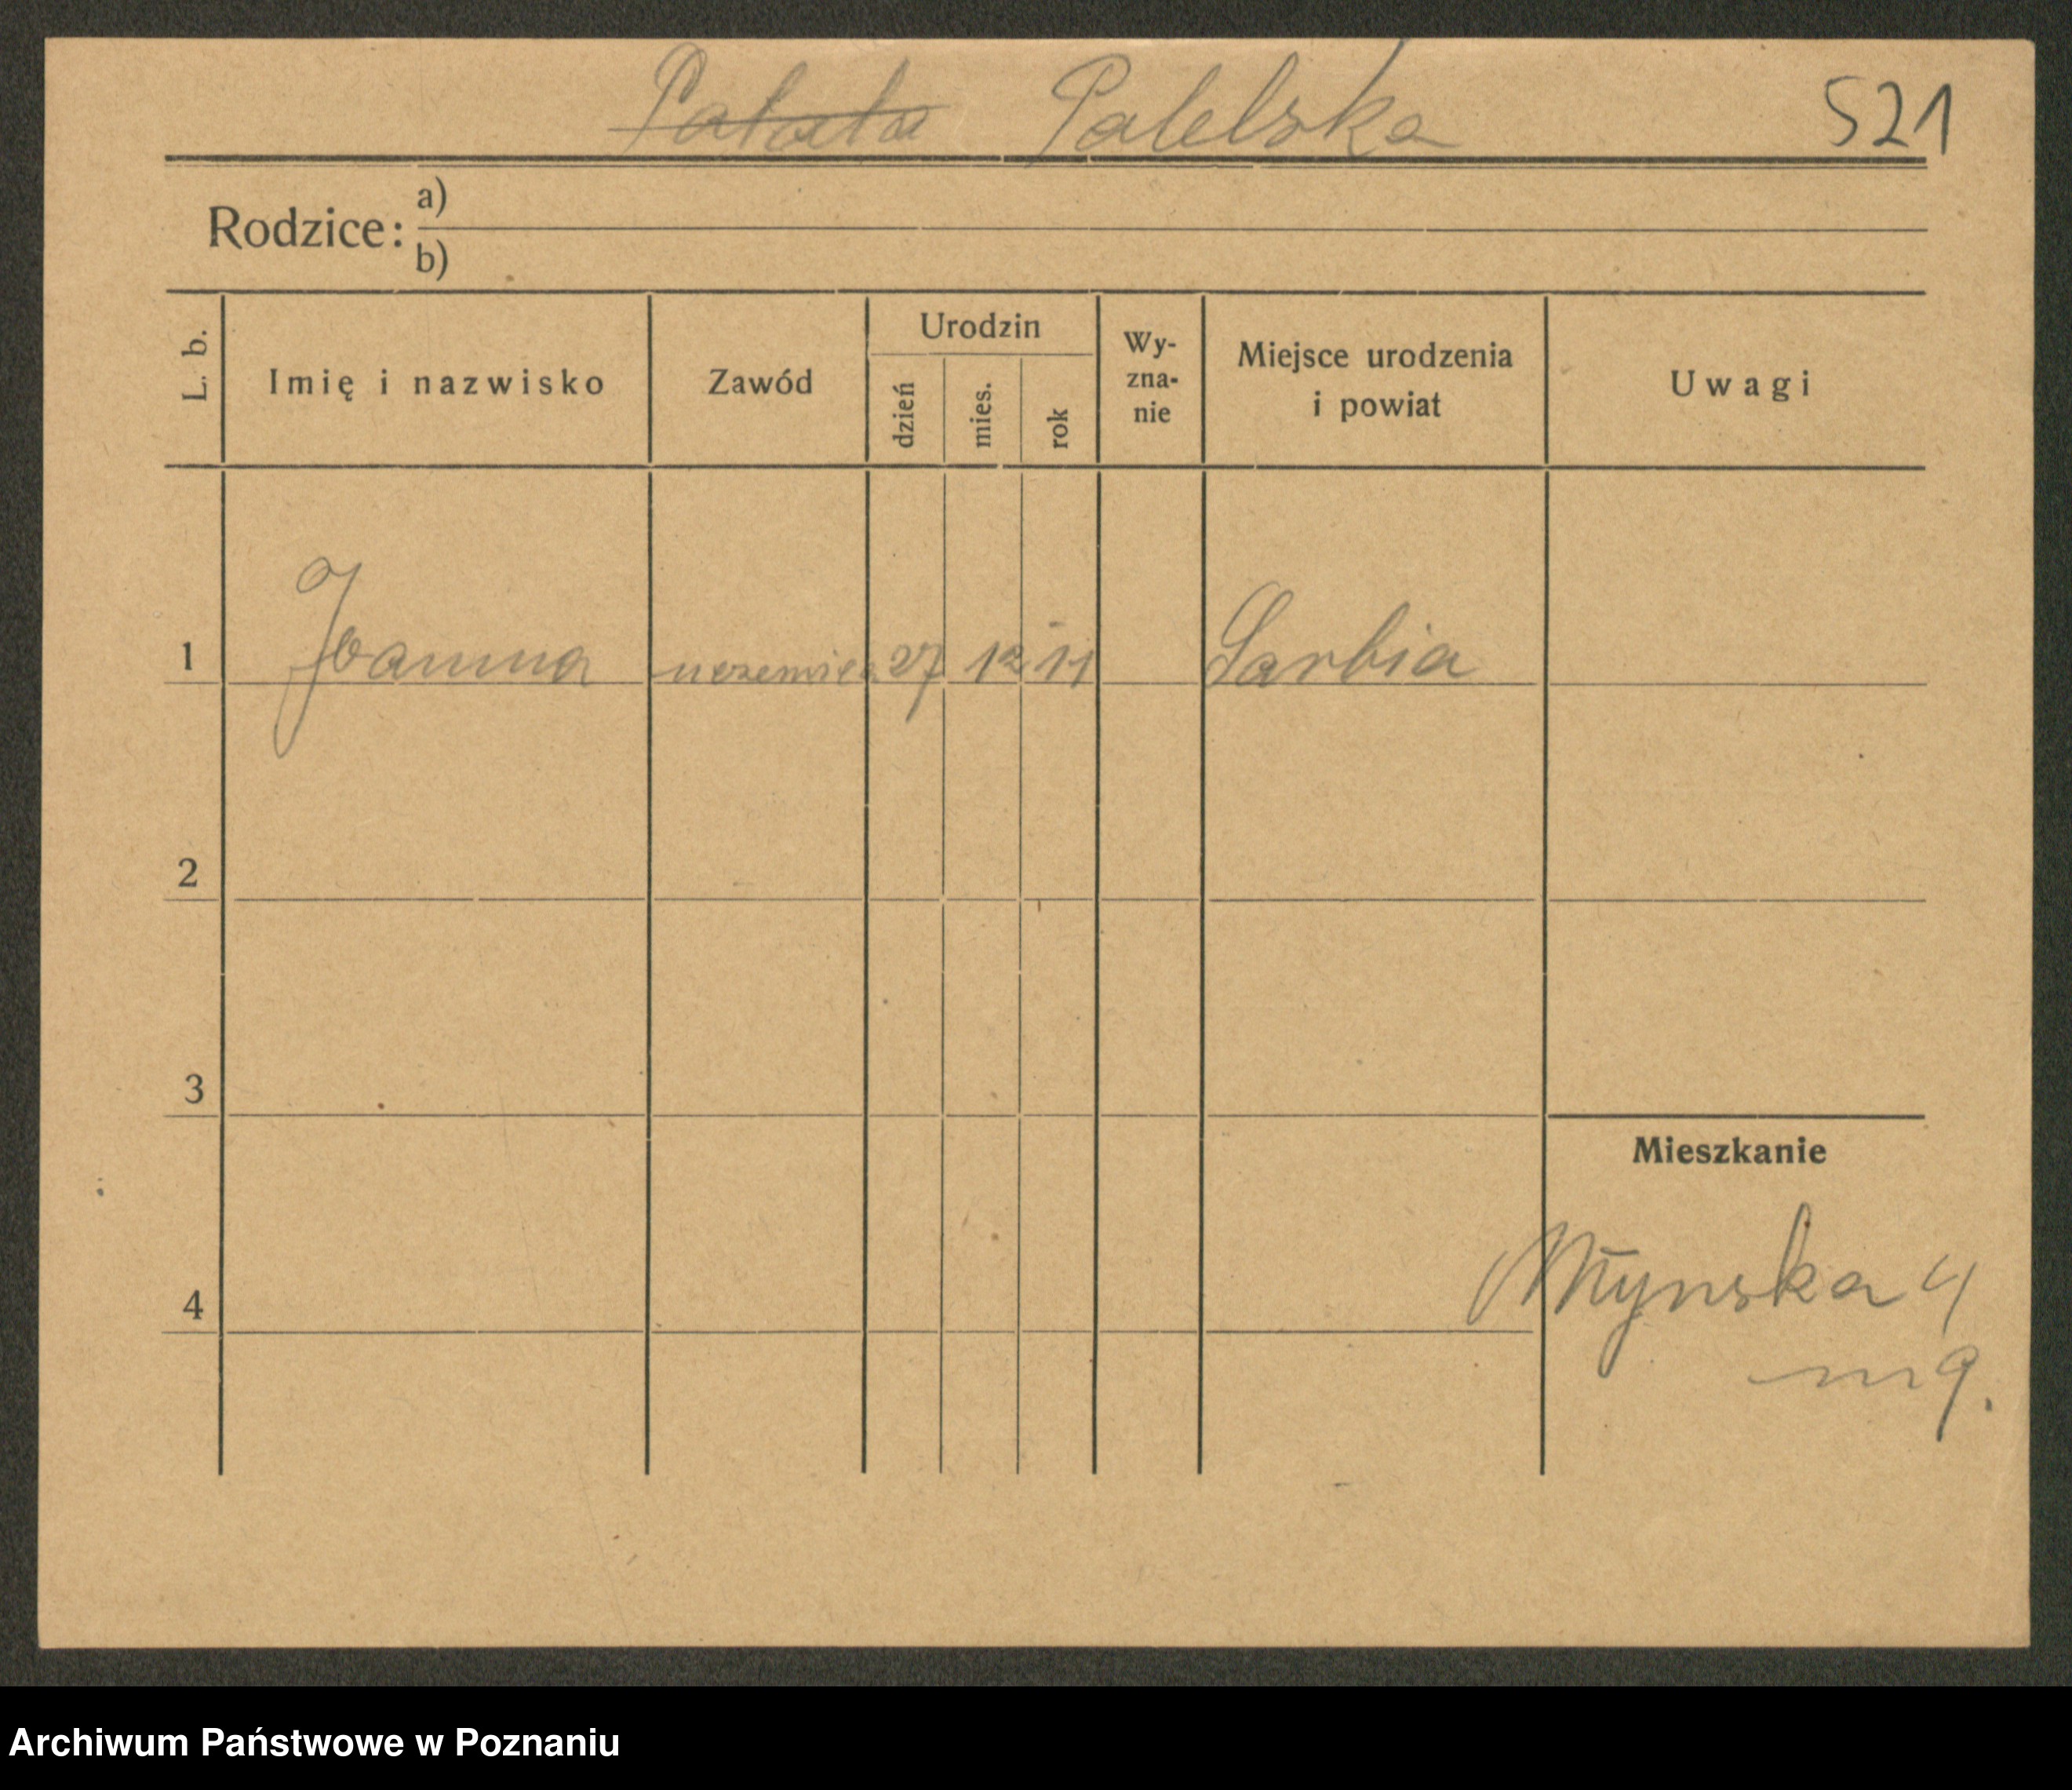 Patala Patelska 521
Rodzice: a)
b)
L. b.
Imię i nazwisko
Zawód
Urodzin
dzień
mies.
rok
Wy-
zna-
nie
Miejsce urodzenia
i powiat
Uwagi
1 Joanna 27 12 11 Sarbia
2
3
Mieszkanie
4 Młynska 4
m 9.
Archiwum Państwowe w Poznaniu